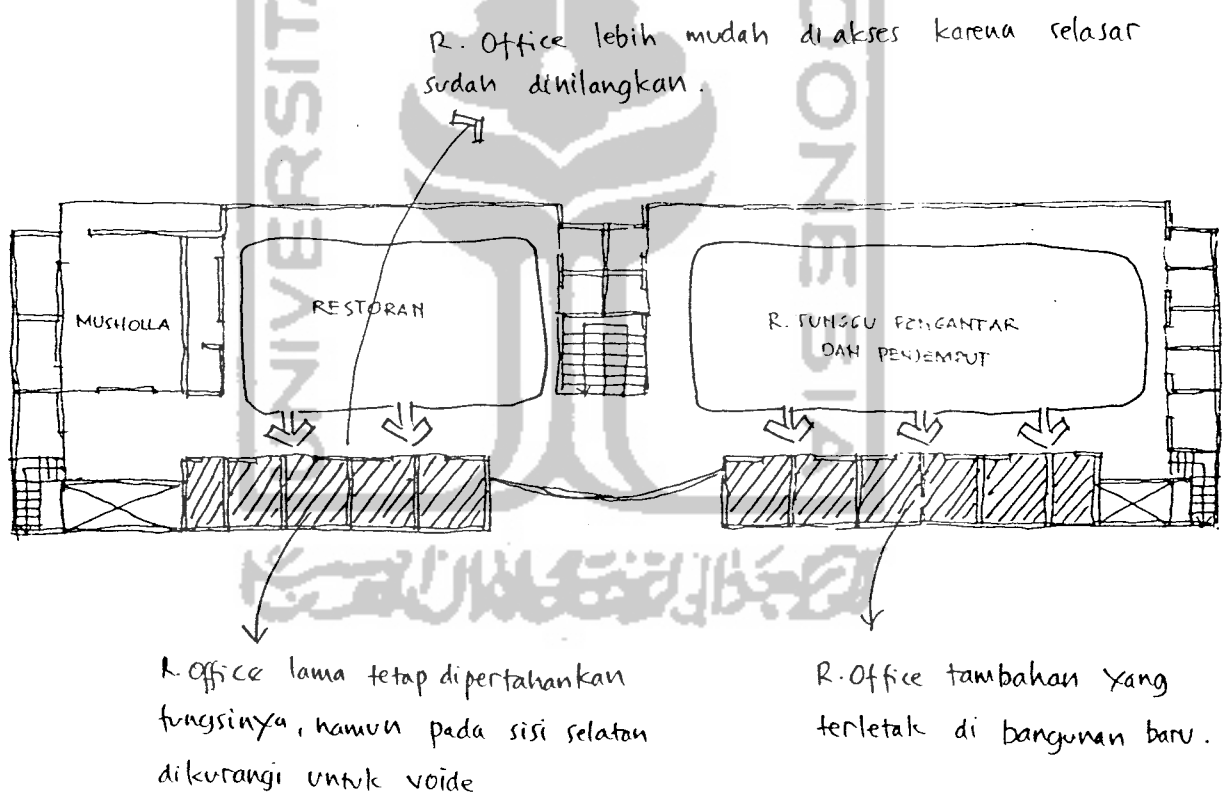 R. Office lebih mudah di akses karena selasar
sudah dihilangkan.
UNIVERSITA
ONESIA
MUSHOLLA
RESTORAN
R. TUNGGU PENGANTAR
DAN PENJEMPUT
R. Office lama tetap dipertahankan
fungsinya, namun pada sisi selatan
dikurangi untuk voide
R. Office tambahan yang
terletak di bangunan baru.